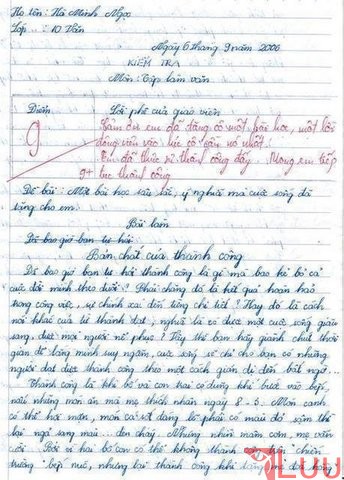 Họ tên: Hà Minh Ngọc
Lớp: 10 Văn
Ngày 6 tháng 9 năm 2006
KIỂM TRA
Môn: Tập làm văn
Điểm
Lời phê của giáo viên
9
Cảm ơn em đã tặng cô một bài học, một lời
động viên vào lúc cô cần nó nhất.
Em đã thực sự thành công đấy. Mong em tiếp
9+ tục thành công
Đề bài: Một bài học sâu sắc, ý nghĩa mà cuộc sống đã
tặng cho em.
Bài làm
Đã bao giờ bạn tự hỏi
Bản chất của thành công
Đã bao giờ bạn tự hỏi thành công là gì mà bao kẻ bỏ cả
cuộc đời mình theo đuổi? Phải chăng đó là kết quả hoàn hảo
trong công việc, sự chính xác đến từng chi tiết? Hay đó là cách
nói khác của từ thành đạt, nghĩa là có được một cuộc sống giàu
sang, được mọi người nể phục? Vậy thì bạn hãy giành chút thời
gian để lắng mình suy ngẫm, cuộc sống sẽ chỉ cho bạn có những
người đạt được thành công theo một cách giản dị đến bất ngờ...
Thành công là khi bố và con trai có dũng khí bước vào bếp,
nấu những món ăn mà mẹ thích nhân ngày 8-3. Món canh
có thể hơi mặn, món cá sốt đáng lẽ phải có màu đỏ sậm thì
lại ngả sang màu... đen cháy. Nhưng nhìn mâm cơm, mẹ vẫn
cười. Bởi vì hai bố con có thể không thành trên chiến
trường bếp núc, nhưng lại thành công khi tặng mẹ đóa hồng
LUU